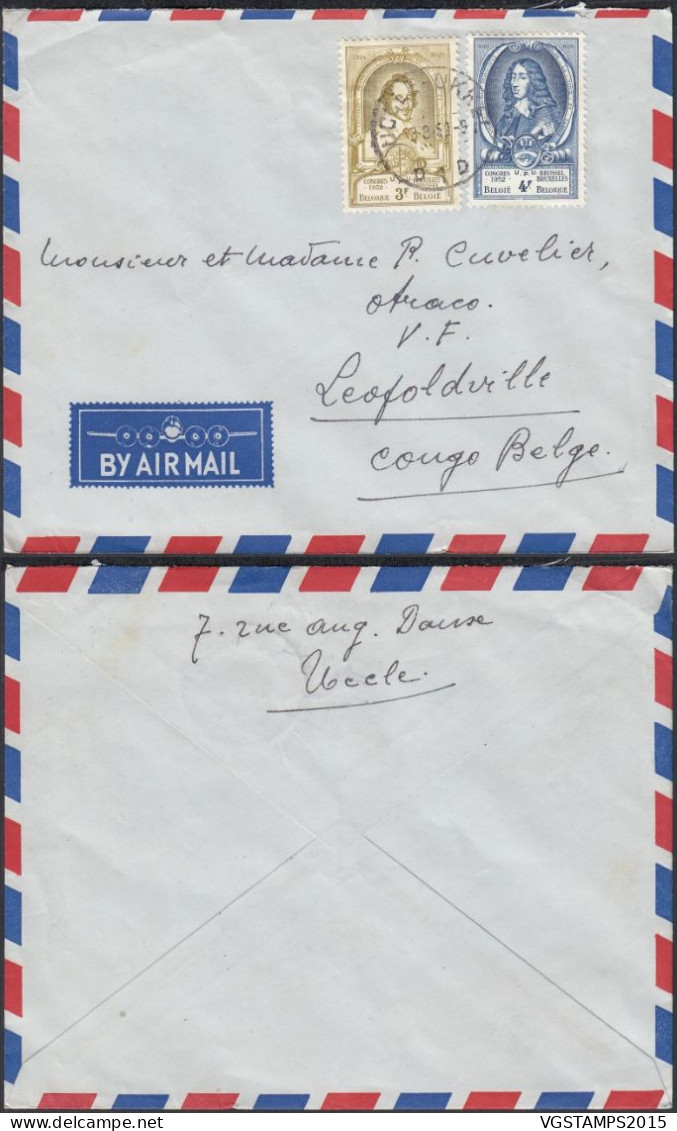 CONGRES U.P.U. BRUXELLES
1952
BELGIQUE 3F BELGIË
CONGRES U.P.U. BRUSSEL
1952 BRUXELLES
BELGIË 4F BELGIQUE
Monsieur et Madame P. Cuvelier,
Otraco.
V.F.
Leopoldville
Congo Belge.
BY AIR MAIL
7. rue Aug. Danse
Uccle.
VGSTAMPS2015